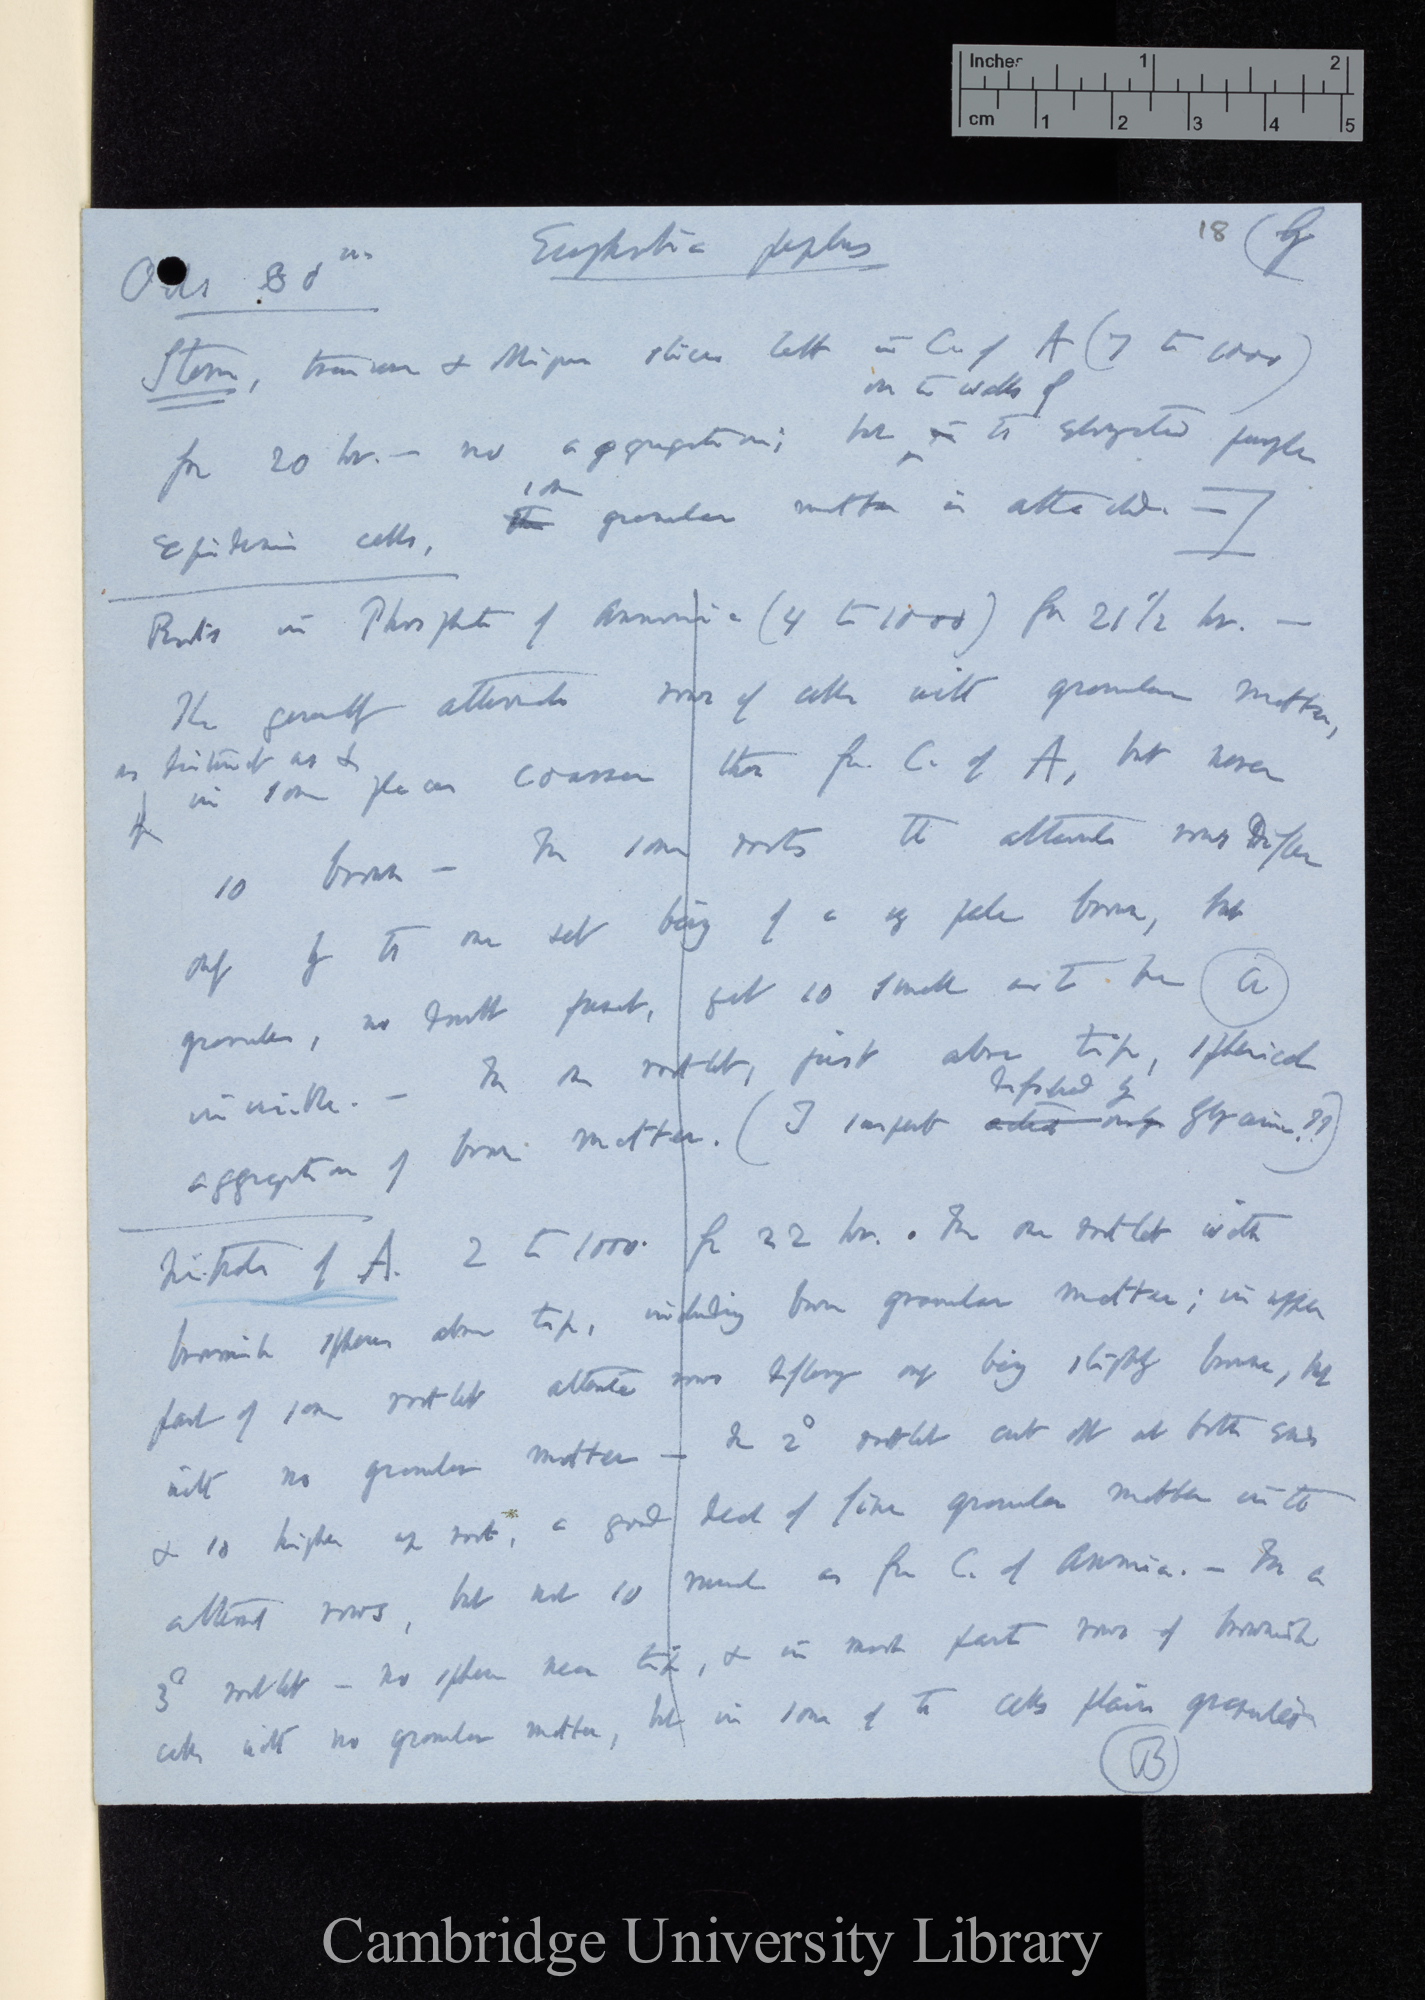 Inches 1 2
cm 1 2 3 4 5
Euphorbia peplus
18 (
Stem, & slices left in C. of A (7 to 1000)
on the walls of
for 20 hr. — no aggregation; but the elongated purple
some
epidermic cells, granular matter is attached. —
Roots in Phosphate of Ammonia (4 to 1000) for 21 1/2 hr. —
The generally alternate rows of cells with granular matter,
as distinct as &
in some places coarser than for C. of A, but never
so brown — In some roots the alternate rows differ
only by the one set being of a v pale brown, but
granules, no doubt present, yet so small as to be (a)
invisible. — In one rootlet, just above tip, spherical
aggregation of brown matter. (I suspect only Glycerine??)
Nitrate of A. 2 to 1000. for 22 hr. In one rootlet with
brownish spheres above tip, including brown granular matter; in upper
part of some rootlet alternate rows differing only being slightly brown, but
with no granular matter — In 2° rootlet cut off at both ends
& so higher up root, a good deal of fine granular matter in the
alternate rows, but not so much as for C. of Ammonia. — In a
3° rootlet — no spheres near tip, & in most parts rows of brownish
cells with no granular matter, but in some of the cells plain granules
(B)
Cambridge University Library